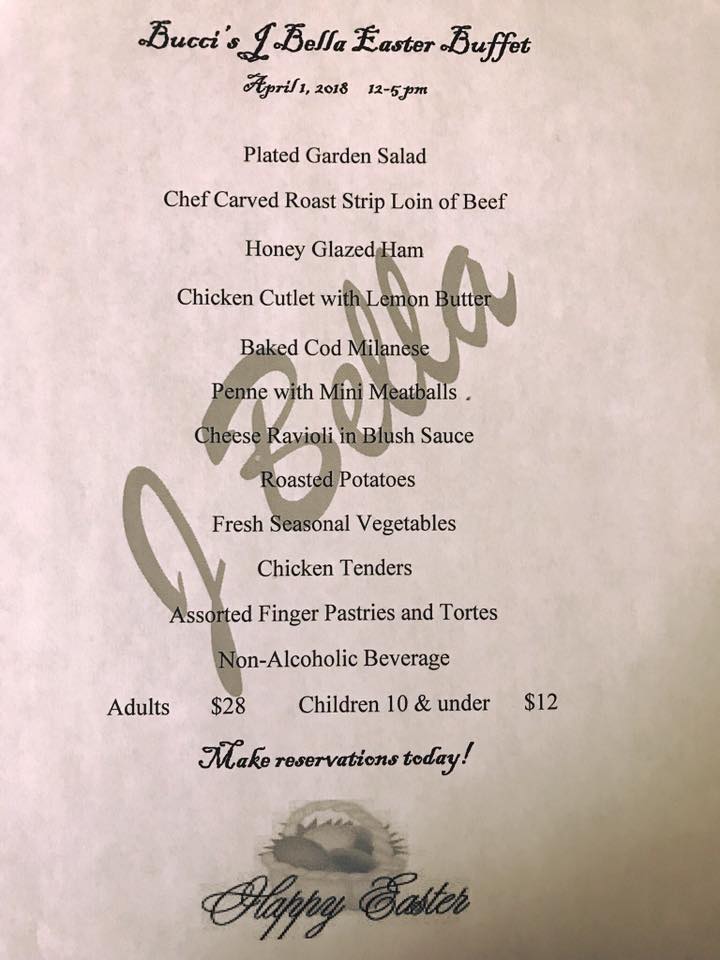 Bucci's J Bella Easter Buffet
April 1, 2018 12-5 pm
Plated Garden Salad
Chef Carved Roast Strip Loin of Beef
Honey Glazed Ham
Chicken Cutlet with Lemon Butter
Baked Cod Milanese
Penne with Mini Meatballs
Cheese Ravioli in Blush Sauce
Roasted Potatoes
Fresh Seasonal Vegetables
Chicken Tenders
Assorted Finger Pastries and Tortes
Non-Alcoholic Beverage
Adults $28 Children 10 & under $12
Make reservations today!
Happy Easter
J Bella